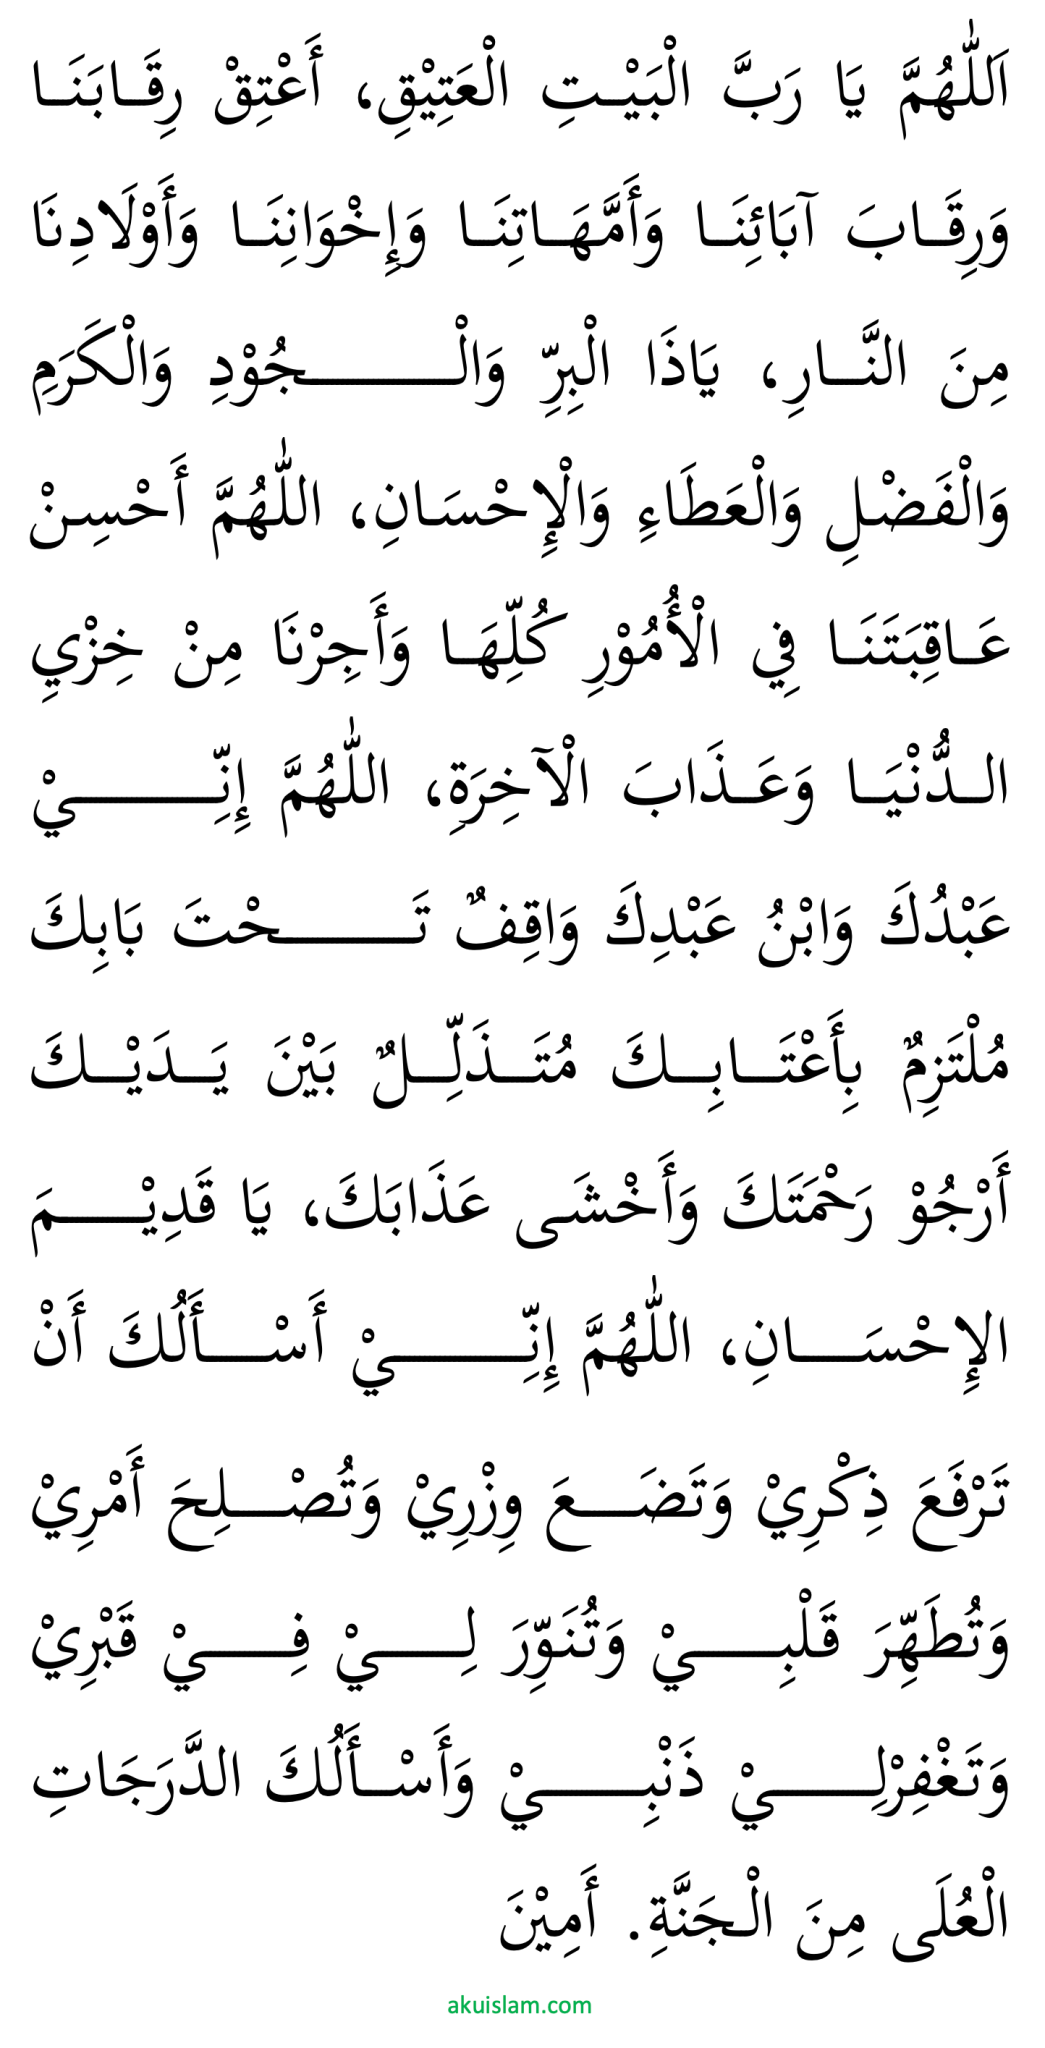 اَللّٰهُمَّ يَا رَبَّ الْبَيْتِ الْعَتِيْقِ، أَعْتِقْ رِقَابَنَا
وَرِقَابَ آبَائِنَا وَأَمَّهَاتِنَا وَإِخْوَانِنَا وَأَوْلَادِنَا
مِنَ النَّارِ، يَاذَا الْبِرِّ وَالْجُوْدِ وَالْكَرَمِ
وَالْفَضْلِ وَالْعَطَاءِ وَالْإِحْسَانِ، اللّٰهُمَّ أَحْسِنْ
عَاقِبَتَنَا فِي الْأُمُوْرِ كُلِّهَا وَأَجِرْنَا مِنْ خِزْيِ
الدُّنْيَا وَعَذَابَ الْآخِرَةِ، اللّٰهُمَّ إِنِّيْ
عَبْدُكَ وَابْنُ عَبْدِكَ وَاقِفٌ تَحْتَ بَابِكَ
مُلْتَزِمٌ بِأَعْتَابِكَ مُتَذَلِّلٌ بَيْنَ يَدَيْكَ
أَرْجُوْ رَحْمَتَكَ وَأَخْشَى عَذَابَكَ، يَا قَدِيْمَ
الإِحْسَانِ، اللّٰهُمَّ إِنِّيْ أَسْأَلُكَ أَنْ
تَرْفَعَ ذِكْرِيْ وَتَضَعَ وِزْرِيْ وَتُصْلِحَ أَمْرِيْ
وَتُطَهِّرَ قَلْبِيْ وَتُنَوِّرَ لِيْ فِيْ قَبْرِيْ
وَتَغْفِرْلِيْ ذَنْبِيْ وَأَسْأَلُكَ الدَّرَجَاتِ
الْعُلَى مِنَ الْجَنَّةِ. أَمِيْنَ
akuislam.com